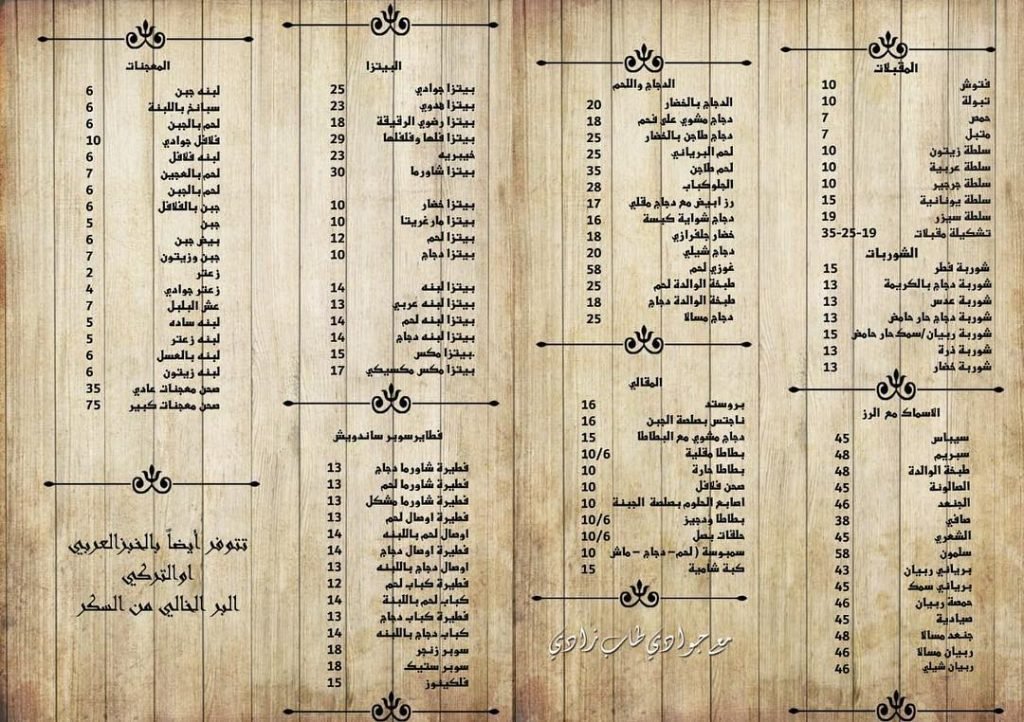 المقبلات
فتوش 10
تبولة 10
حمص 7
متبل 7
سلطة زيتون 10
سلطة عربية 10
سلطة جرجير 10
سلطة يونانية 15
سلطة سيزر 19
تشكيلة مقبلات 19-25-35
الشوربات
شوربة فطر 15
شوربة دجاج بالكريمة 13
شوربة عدس 13
شوربة دجاج حار حامض 13
شوربة ربيان/سمك حار حامض 15
شوربة ذرة 13
شوربة خضار 13
الاسماك مع الرز
سيباس 45
سبريم 48
طبخة الوالدة 48
الصالونة 45
الجنعد 46
صافي 38
الشعري 45
سلمون 58
برياني ربيان 43
برياني سمك 45
حمصة ربيان 46
صيادية 45
جنعد مسالا 48
ربيان مسالا 46
ربيان شيلي 46
الدجاج واللحم
الدجاج بالخضار 20
دجاج مشوي على فحم 18
دجاج طاجن بالخضار 25
لحم البرياني 25
لحم طاجن 35
الجلوكباب 28
رز ابيض مع دجاج مقلي 17
دجاج شواية كبسة 16
خضار جلفرازي 18
دجاج شيلي 20
غوزي لحم 58
طبخة الوالدة لحم 25
طبخة الوالدة دجاج 18
دجاج مسالا 25
المقالي
بروسته 16
ناجتس بصلصة الجبن 16
دجاج مشوي مع البطاطا 15
بطاطا مقلية 10/6
بطاطا حارة 10
صحن فلافل 10
اصابع الحلوم بصلصة الجبنة 10
بطاطا ودجيز 10/6
حلقات بصل 10/6
سمبوسة (لحم - دجاج - ماش 10
كبة شامية 15
مع جوادي طاب زادي
البيتزا
بيتزا جوادي 25
بيتزا هدوي 23
بيتزا رضوي الرقيقة 18
بيتزا فلها وفلفلها 29
خيبريه 23
بيتزا شاورما 30
بيتزا خضار 10
بيتزا مارغريتا 10
بيتزا لحم 12
بيتزا دجاج 10
بيتزا لبنه 14
بيتزا لبنه عربي 13
بيتزا لبنه لحم 14
بيتزا لبنه دجاج 14
بيتزا مكس. 15
بيتزا مكس مكسيكي 17
فطايرسوبر ساندويش
فطيرة شاورما دجاج 13
فطيرة شاورما لحم 13
فطيرة شاورما مشكل 13
فطيرة اوصال لحم 13
اوصال لحم باللبنه 14
فطيرة اوصال دجاج 14
اوصال دجاج باللبنه 13
فطيرة كباب لحم 12
كباب لحم باللبنة 14
فطيرة كباب دجاج 13
كباب دجاج باللبنه 14
سوبر زنجر 18
سوبر ستيك 18
فلكينوز 15
المعجنات
لبنه جبن 6
سبانخ باللبنة 6
لحم بالجبن 6
فلافل جوادي 10
لبنه فلافل 6
لحم بالعجين 7
لحم بالجبن 6
جبن بالفلافل 6
جبن 5
بيض جبن 6
جبن وزيتون 7
زعتر 2
زعتر جوادي 4
عش البلبل 7
لبنه ساده 5
لبنه زعتر 5
لبنه بالعسل 6
لبنه زيتون 6
صحن معجنات عادي 35
صحن معجنات كبير 75
تتوفر أيضاً بالخبزالعربي
اوالتركي
البر الخالي من السكر